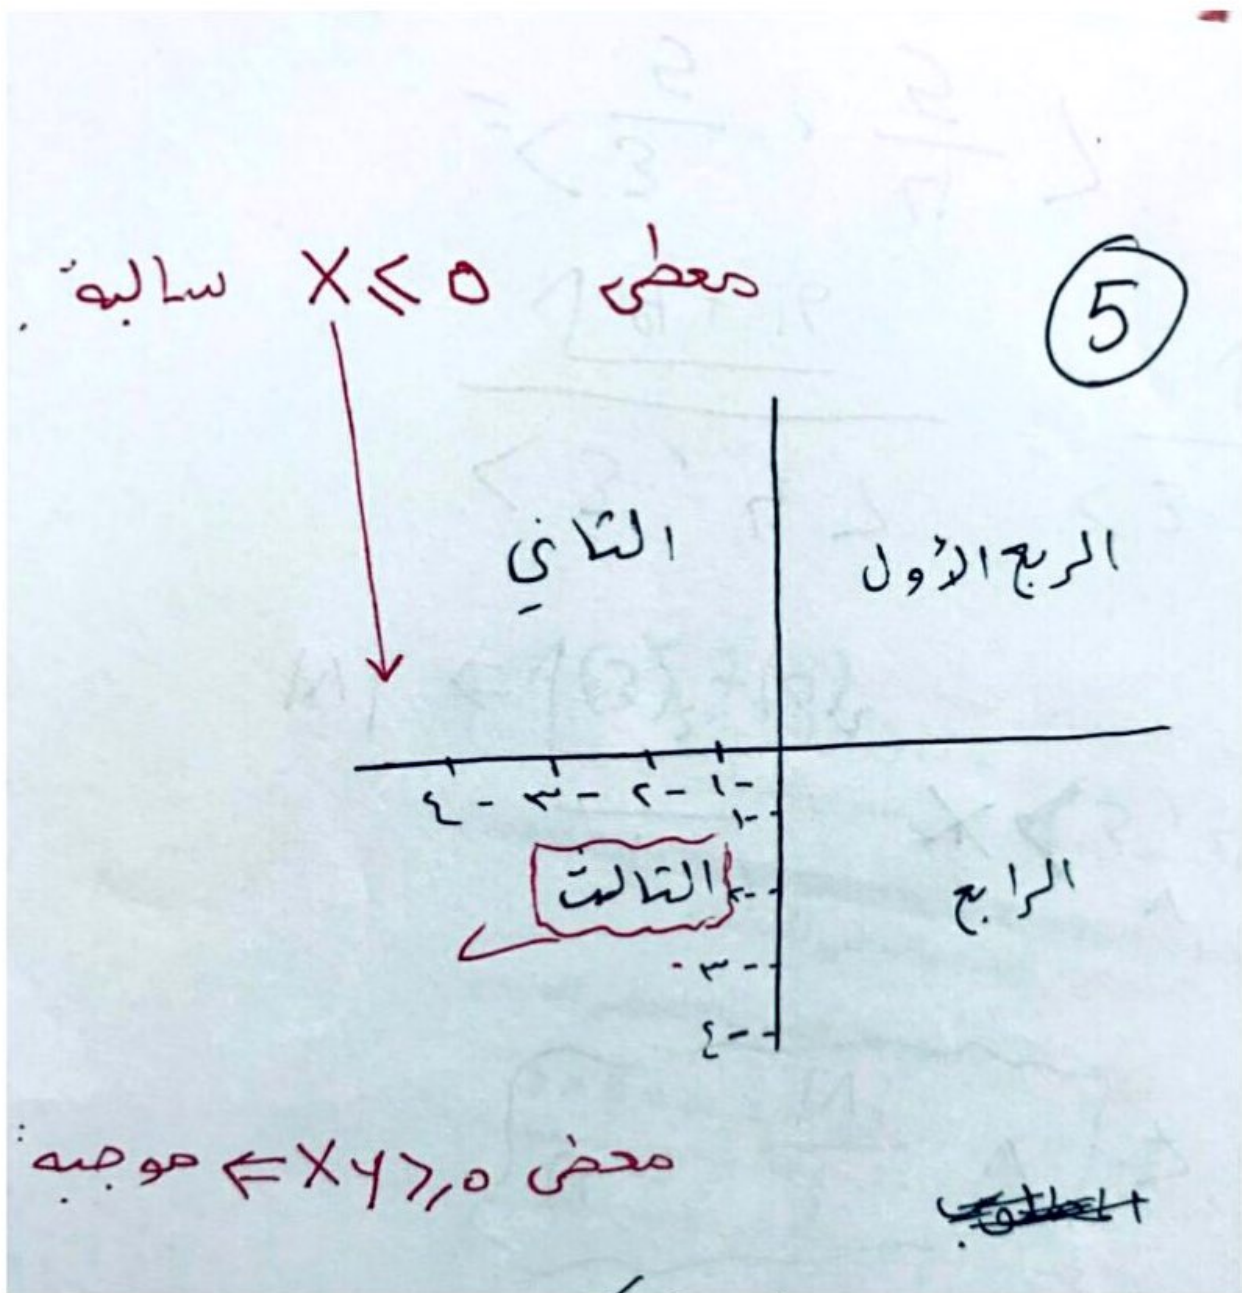 5
معطى X ≤ 0 سالبة
الثاني
الربع الأول
-٤ -٣ -٢ -١
-١
-٢
-٣
-٤
الثالث
الرابع
معطى XY ≥ 0 ⇐ موجبه